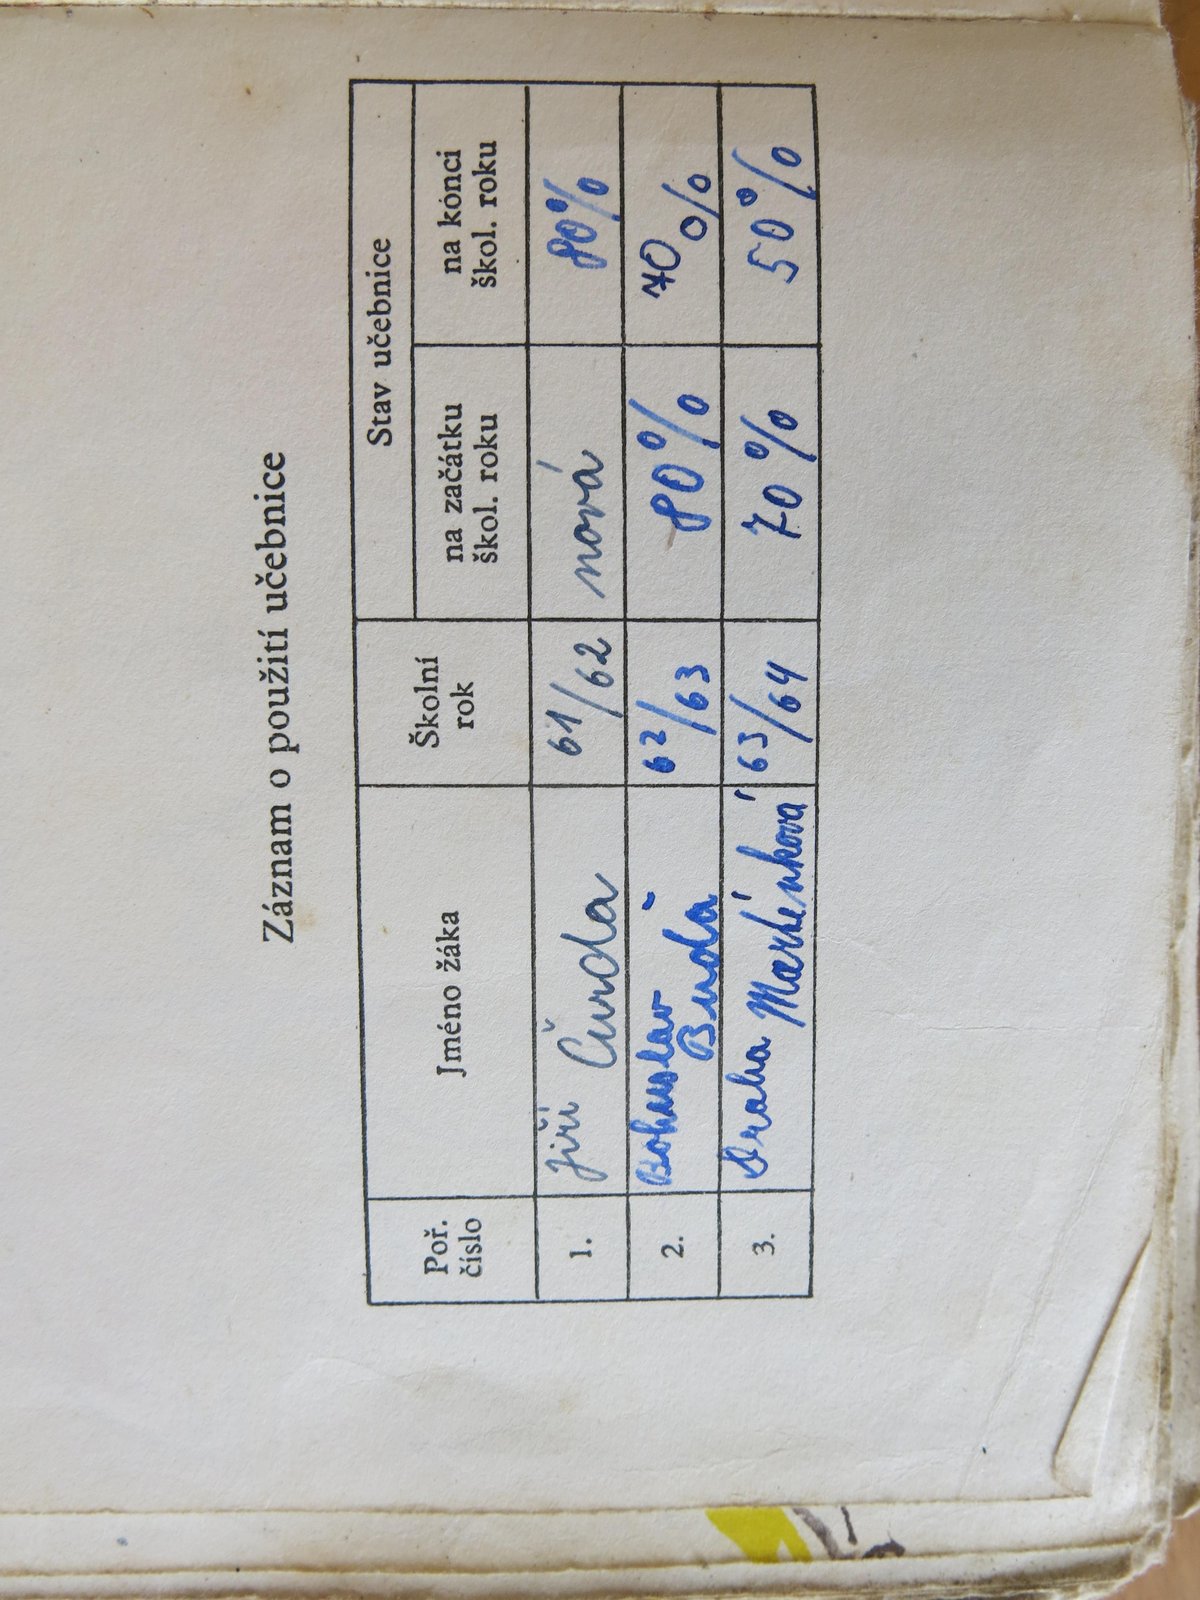 Záznam o použití učebnice
Poř. číslo
Jméno žáka
Školní rok
Stav učebnice
na začátku škol. roku
na konci škol. roku
1. Jiří Čurda 61/62 nová 80%
2. Bohuslav Buďa 62/63 80% 70%
3. Draha 63/64 70% 50%